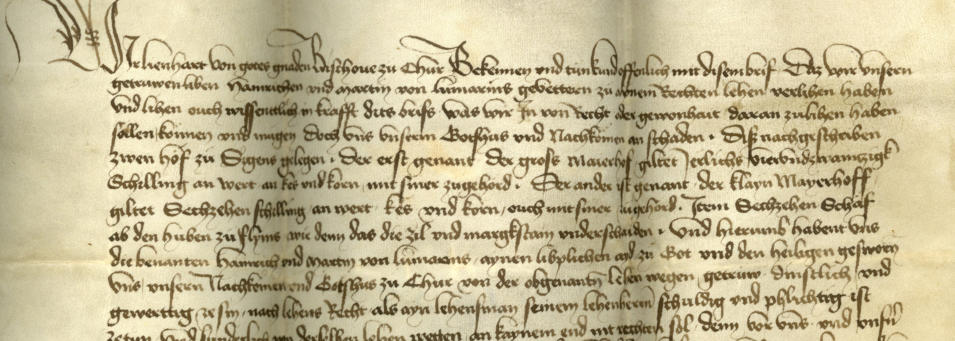 Wir lienhart von gotes gnaden Bischoue zu Chur Bekennen vnd tun kund offenlich mit disem brief Daz wir vnsern
getruwen liben Hainrichen vnd Martin von Lumarins gevettern zu ainem Rechten lehen verlihen haben
vnd lihen ouch wissentlich in krafft dits briefs was wir In von Recht der gewonhait daran zu lihen haben
sollen konnen vnd mugen doch vns vnserm Gotshus vnd Nachkomen an schaden · Diss nachgeschriben
zwen hof zu Sigens gelegen · Der erst genant der gross Maierhof giltet Jerlichs vierundzwaintzigk
Schilling an wert an kes vnd korn mit siner zugehord · Der ander ist genant der klayn Mayerhoff
giltet Sechzehen schilling an wert kes vnd korn ouch mit siner zugehord · Item Sechzehen Schaf
ab den huben zu flyms wie denn das die zil vnd margkstain vnderschaiden · Vnd hierumb habent vns
die benanten Hainrich vnd Martin von Lumarins aynen liplichen ayd zu Got vnd den heiligen gesworn
vns vnsern Nachkomen vnd Gotshus zu Chur von der obgenanten lehen wegen getruw dinstlich vnd
gewerttig ze sin nach lehens Recht als ayn lehensman seinem lehenherrn schuldig vnd phlichtig ist
vnd lehen wegen an kaynem end mit rechten sol denn vor vns vnd